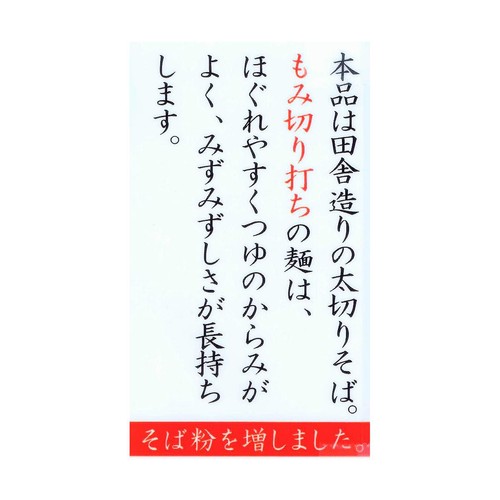 本品は田舎造りの太切りそば。
もみ切り打ちの麺は、
ほぐれやすくつゆのからみが
よく、みずみずしさが長持ち
します。
そば粉を増しました。